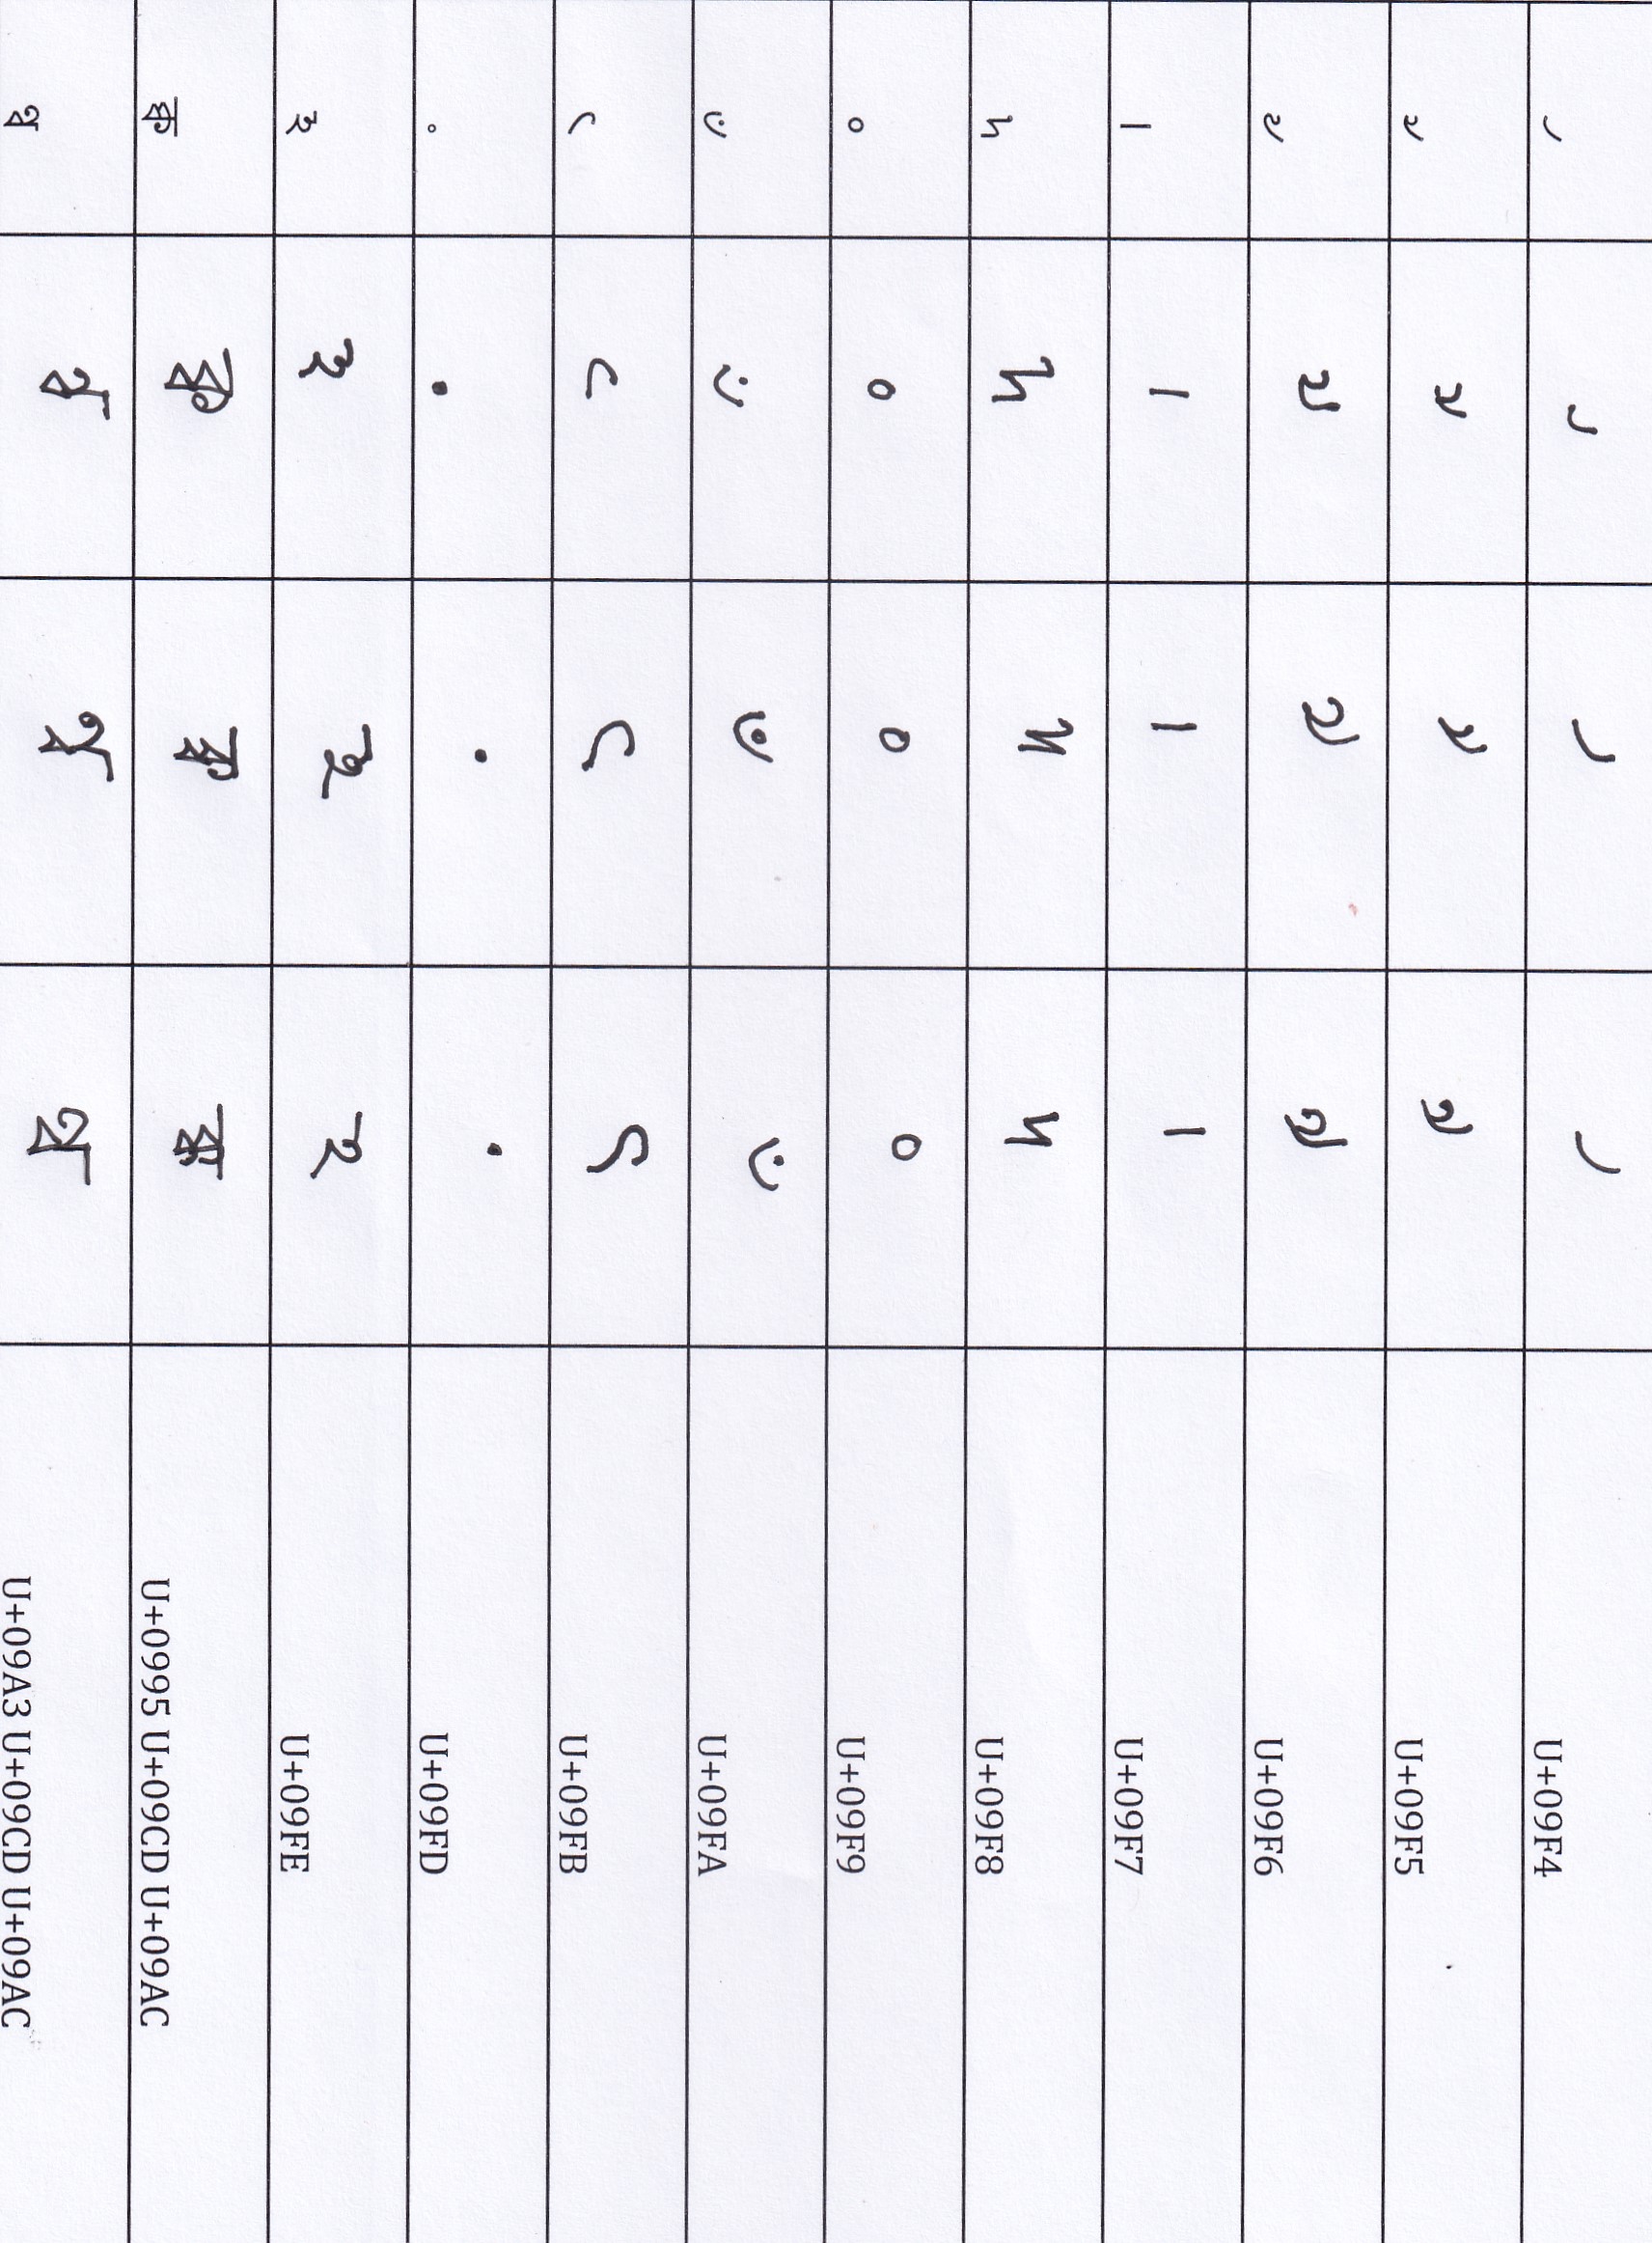 ৴ ৴ ৴ ৴ U+09F4
৵ ৵ ৵ ৵ U+09F5
৶ ৶ ৶ ৶ U+09F6
৷ ৷ ৷ ৷ U+09F7
৸ ৸ ৸ ৸ U+09F8
৹ ৹ ৹ ৹ U+09F9
৺ ৺ ৺ ৺ U+09FA
৻ ৻ ৻ ৻ U+09FB
৽ ৽ ৽ ৽ U+09FD
৾ ৾ ৾ ৾ U+09FE
ক্ব ক্ব ক্ব ক্ব U+0995 U+09CD U+09AC
ণ্ব ণ্ব ণ্ব ণ্ব U+09A3 U+09CD U+09AC